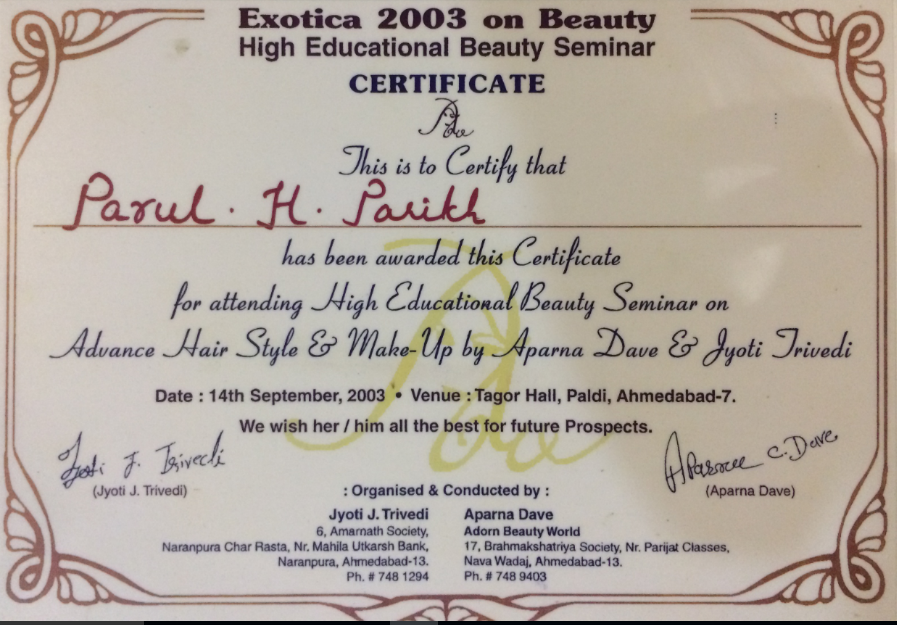 Exotica 2003 on Beauty
High Educational Beauty Seminar
CERTIFICATE
This is to Certify that
Parul. H. Parikh
has been awarded this Certificate
for attending High Educational Beauty Seminar on
Advance Hair Style & Make-Up by Aparna Dave & Jyoti Trivedi
Date : 14th September, 2003 • Venue : Tagor Hall, Paldi, Ahmedabad-7.
We wish her / him all the best for future Prospects.
Jyoti J. Trivedi
(Jyoti J. Trivedi)
Aparna C. Dave
(Aparna Dave)
: Organised & Conducted by :
Jyoti J. Trivedi
6, Amarnath Society,
Naranpura Char Rasta, Nr. Mahila Utkarsh Bank,
Naranpura, Ahmedabad-13.
Ph. # 748 1294
Aparna Dave
Adorn Beauty World
17, Brahmakshatriya Society, Nr. Parijat Classes,
Nava Wadaj, Ahmedabad-13.
Ph. # 748 9403